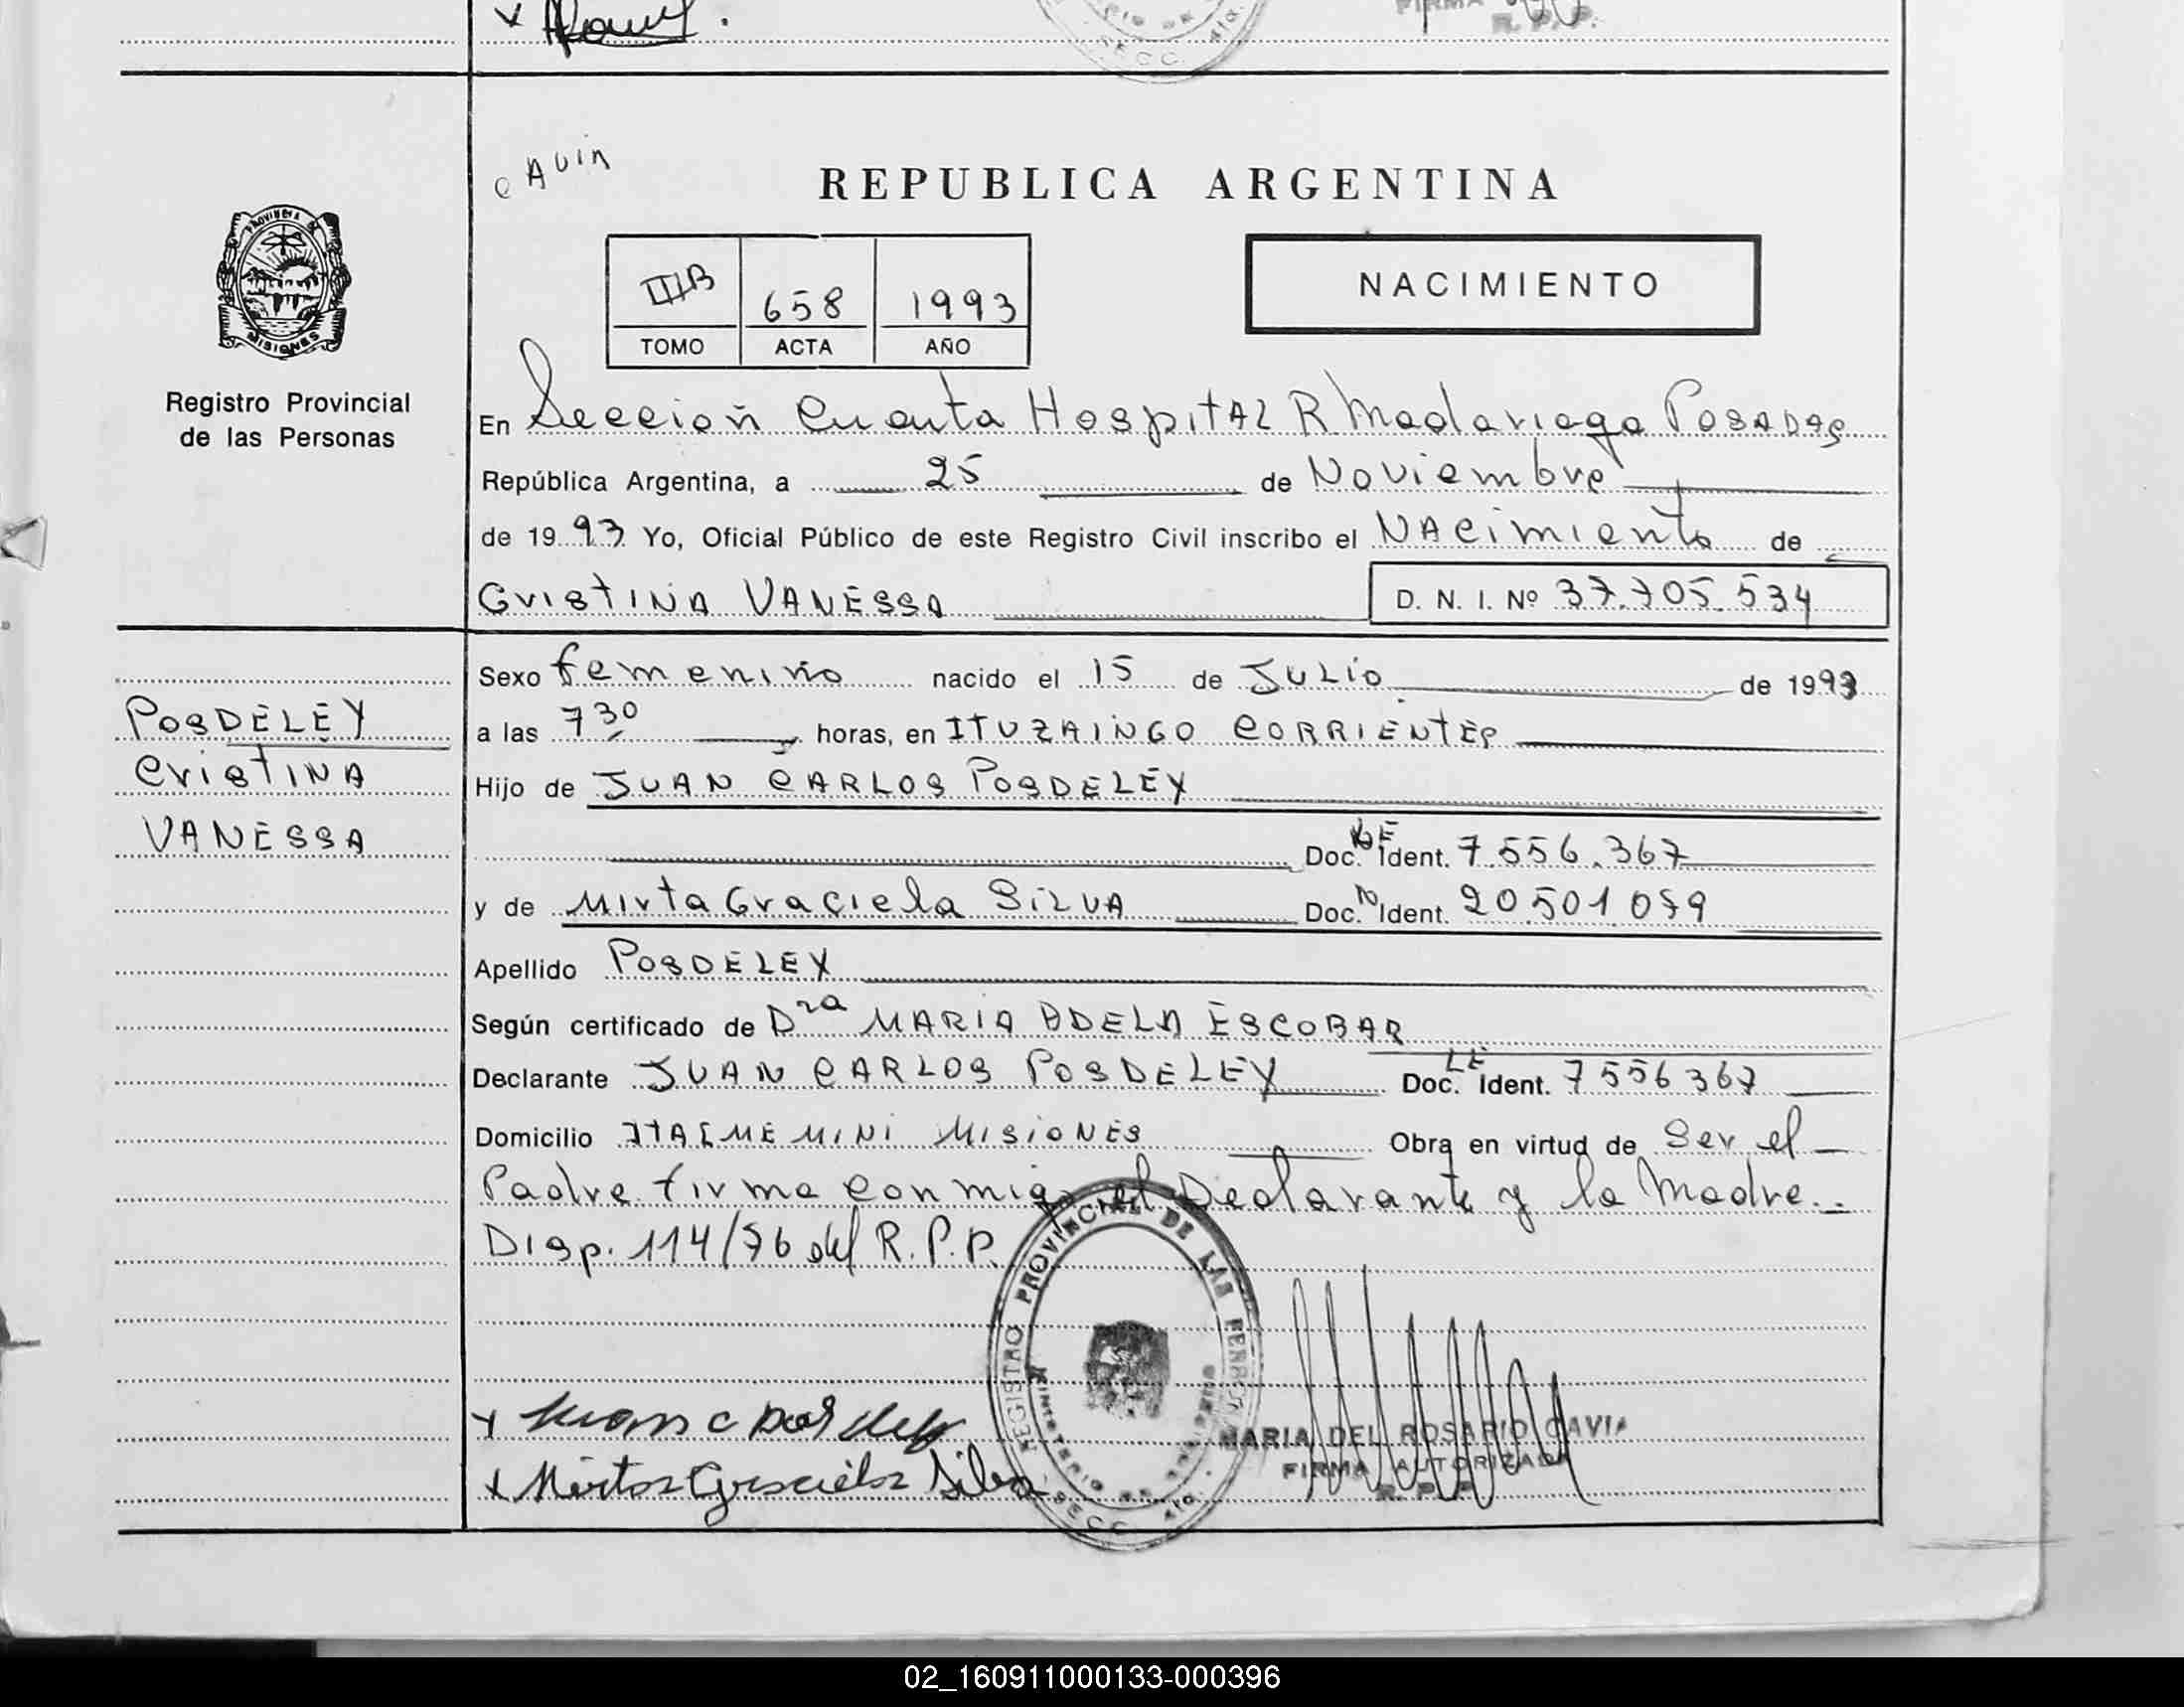 FIRMA
R. P. P.
SECC. 4ta.
CAVIA
REPUBLICA ARGENTINA
PROVINCIA DE
MISIONES
IIIB 658 1993
TOMO ACTA AÑO
NACIMIENTO
Registro Provincial
de las Personas
En Sección Cuarta Hospital R Madariaga POSADAS
República Argentina, a 25 de Noviembre
de 1993 Yo, Oficial Público de este Registro Civil inscribo el NACimiento de
CristINA VANESSA D. N. I. Nº 37.705.534
Sexo femenino nacido el 15 de JULio de 1993
POSDELEY
CristINA
VANESSA
a las 7 30 horas, en ITUZAINGO CORRIENTES
Hijo de JUAN CARLOS POSDELEY
Doc. LE Ident. 7.556.367
y de Mirta Graciela SiLVA Doc. N Ident. 20.501 079
Apellido POSDELEY
Según certificado de Dra MARIA ADELA ESCOBAR
Declarante JUAN CARLOS POSDELEY Doc. LE Ident. 7556367
Domicilio MiNi MISiONES Obra en virtud de Ser el
Padre firma conmigo el Declarante y la Madre.
Disp. 114/76 del R.P.P.
REGISTRO PROVINCIAL DE LAS PERSONAS
MINISTERIO DE GOBIERNO
SECC. 4ta.
Juan C Posdeley
Mirta Graciela Silva
MARIA DEL ROSARIO CAVIA
FIRMA AUTORIZADA
R. P. P.
02_160911000133-000396